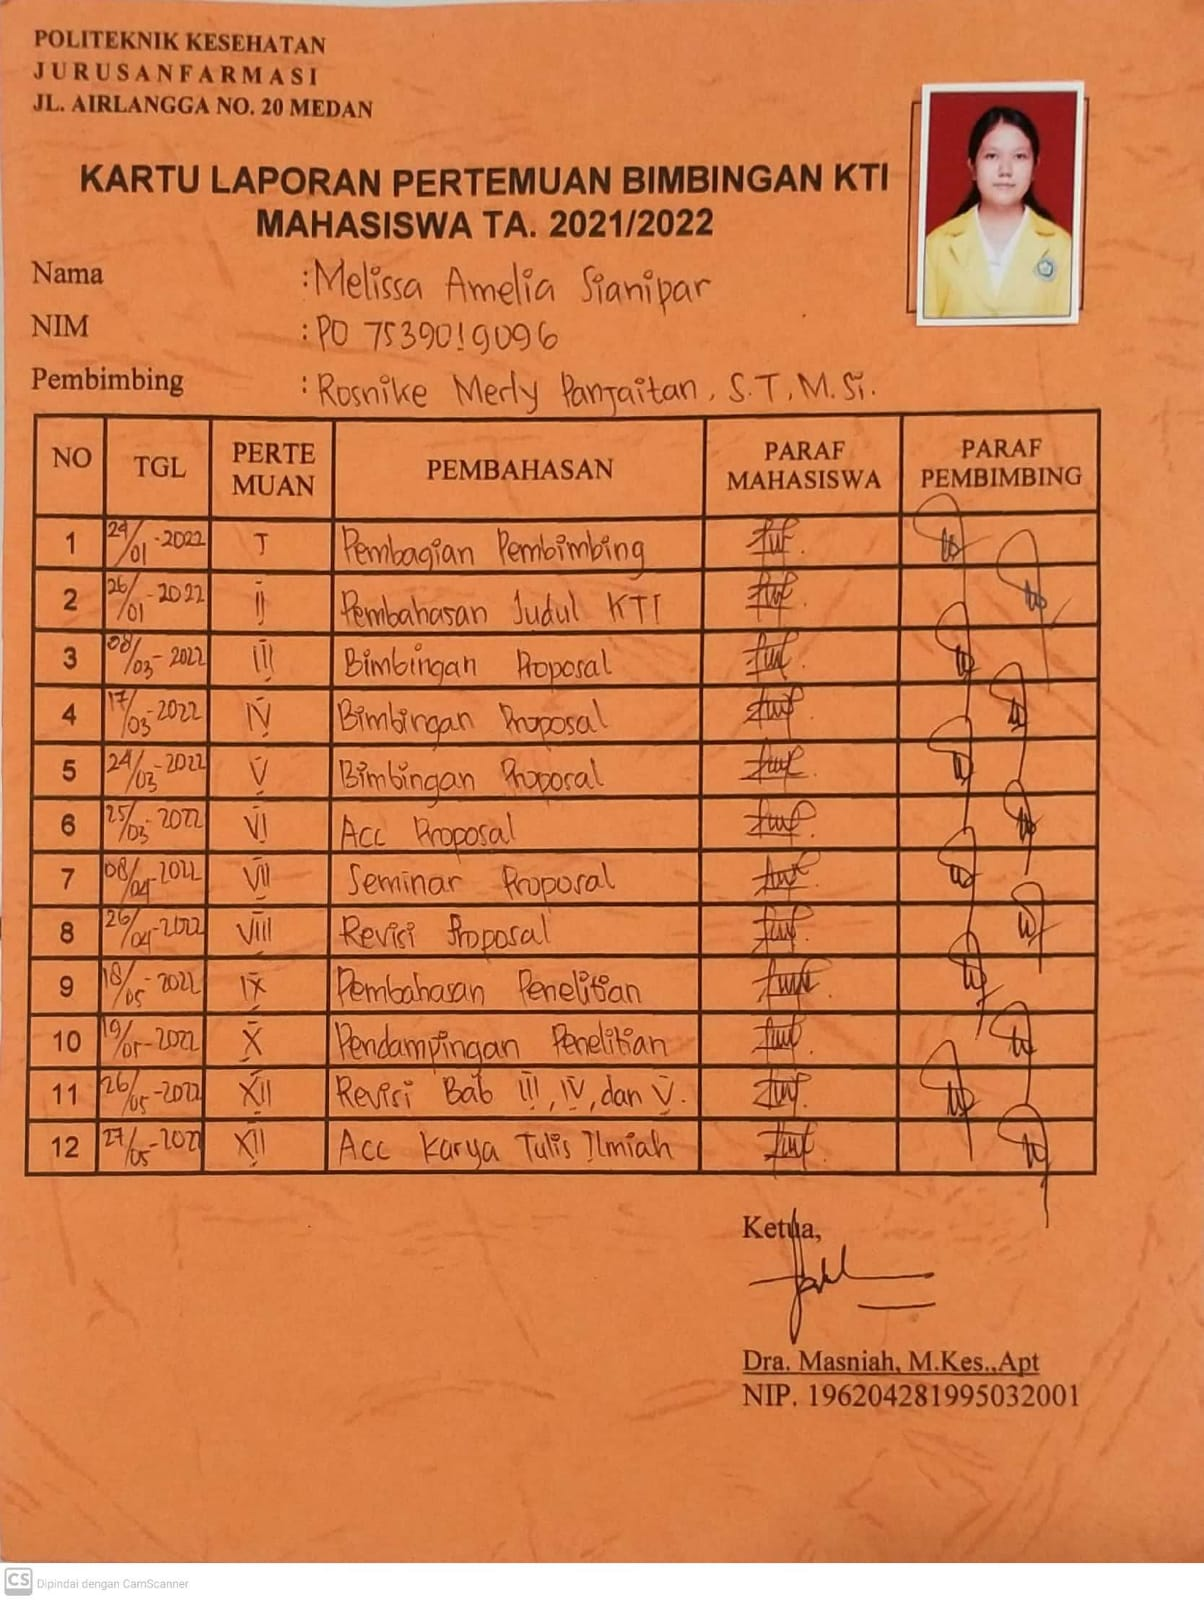 POLITEKNIK KESEHATAN
JURUSANFARMASI
JL. AIRLANGGA NO. 20 MEDAN
KARTU LAPORAN PERTEMUAN BIMBINGAN KTI
MAHASISWA TA. 2021/2022
Nama : Melissa Amelia Sianipar
NIM : PO 7539019096
Pembimbing : Rosnike Merly Panjaitan, S.T, M.Si.
NO TGL PERTE MUAN PEMBAHASAN PARAF MAHASISWA PARAF PEMBIMBING
1 24/01-2022 I Pembagian Pembimbing
2 26/01-2022 II Pembahasan Judul KTI
3 08/03-2022 III Bimbingan Proposal
4 17/03-2022 IV Bimbingan Proposal
5 24/03-2022 V Bimbingan Proposal
6 25/03-2022 VI Acc Proposal
7 08/04-2022 VII Seminar Proposal
8 26/04-2022 VIII Revisi Proposal
9 18/05-2022 IX Pembahasan Penelitian
10 19/05-2022 X Pendampingan Penelitian
11 26/05-2022 XII Revisi Bab III, IV, dan V.
12 27/05-2022 XII Acc Karya Tulis Ilmiah
Ketua,
Dra. Masniah, M.Kes.,Apt
NIP. 196204281995032001
CS Dipindai dengan CamScanner